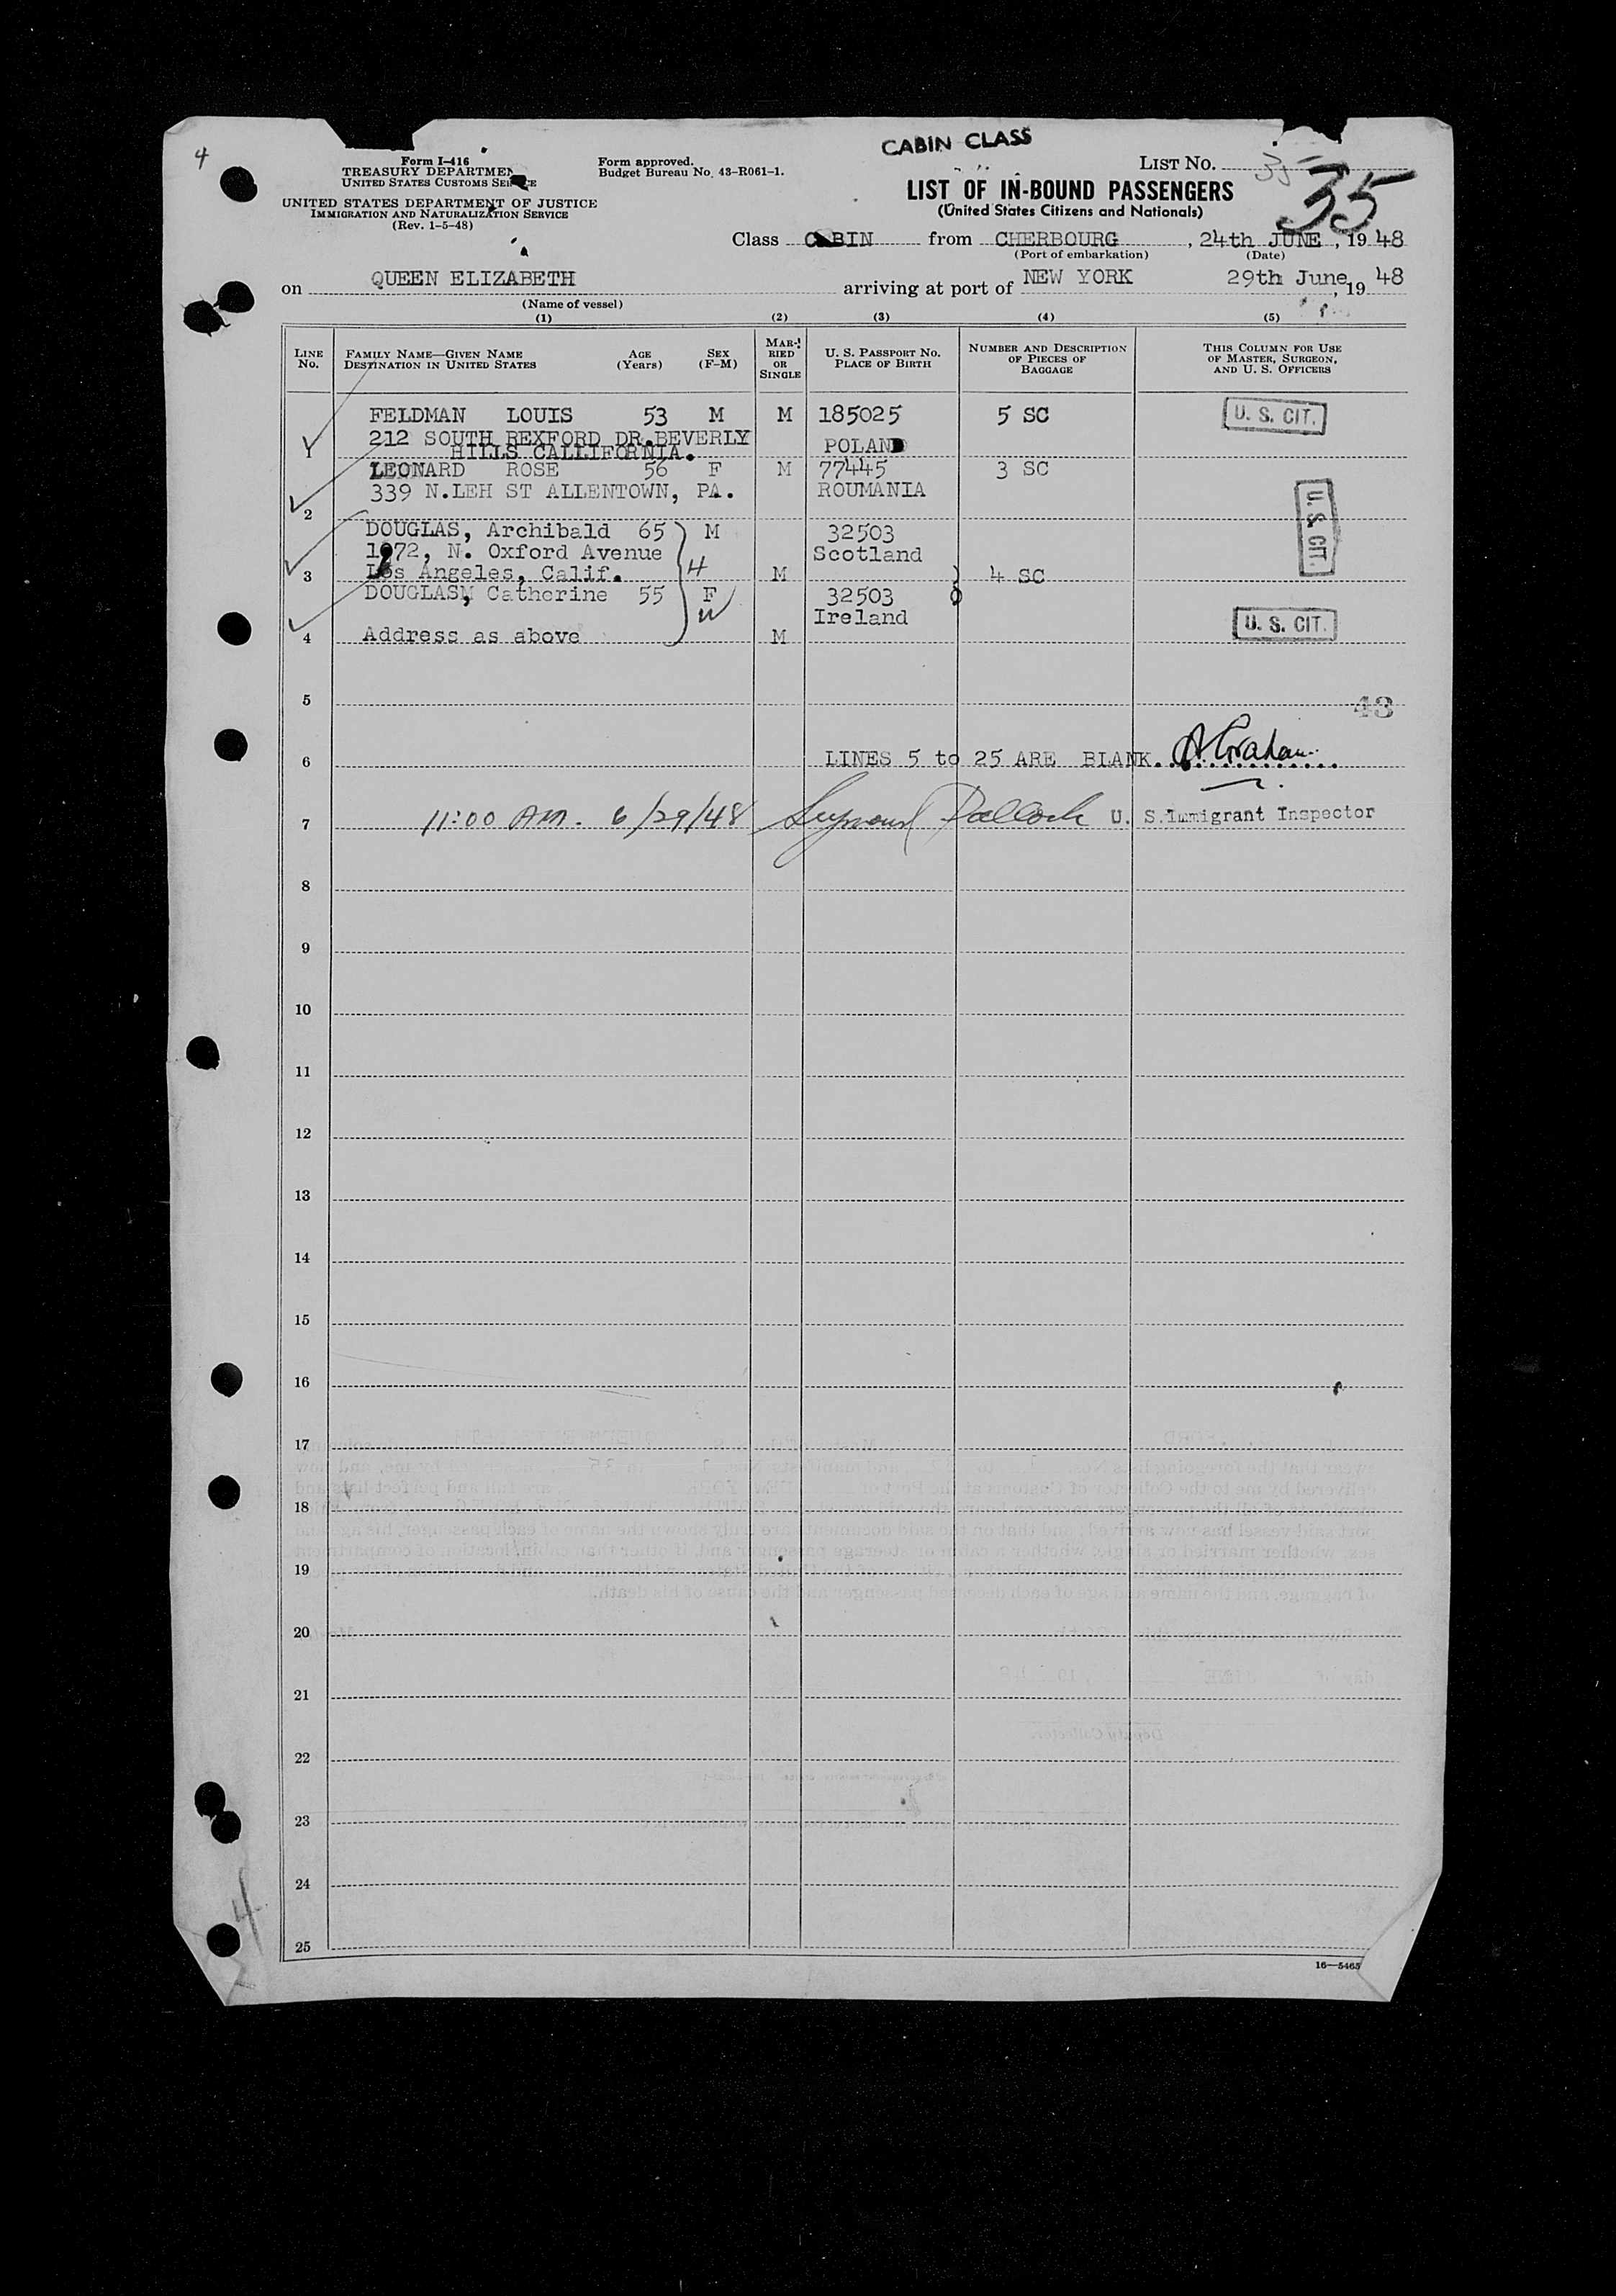 4
CABIN CLASS
Form I-416
TREASURY DEPARTMENT
UNITED STATES CUSTOMS SERVICE
UNITED STATES DEPARTMENT OF JUSTICE
IMMIGRATION AND NATURALIZATION SERVICE
(Rev. 1-5-48)
Form approved.
Budget Bureau No. 43-R061-1.
LIST NO. 35
35
LIST OF IN-BOUND PASSENGERS
(United States Citizens and Nationals)
Class CABIN from CHERBOURG, 24th JUNE, 1948
(Port of embarkation) (Date)
on QUEEN ELIZABETH arriving at port of NEW YORK 29th June, 19 48
(Name of vessel)
(1) (2) (3) (4) (5)
LINE No. FAMILY NAME—GIVEN NAME DESTINATION IN UNITED STATES AGE (Years) SEX (F-M) MARRIED OR SINGLE U. S. PASSPORT No. PLACE OF BIRTH NUMBER AND DESCRIPTION OF PIECES OF BAGGAGE THIS COLUMN FOR USE OF MASTER, SURGEON, AND U. S. OFFICERS
FELDMAN LOUIS 53 M M 185025 5 SC U. S. CIT.
212 SOUTH REXFORD DR.BEVERLY POLAND
1 HILLS CALLIFORNIA.
LEONARD ROSE 56 F M 77445 3 SC
339 N.LEH ST ALLENTOWN, PA. ROUMANIA U. S. CIT.
2
DOUGLAS, Archibald 65 M 32503
1072, N. Oxford Avenue Scotland
3 Los Angeles, Calif. H M 4 SC
DOUGLASM, Catherine 55 F 32503
W Ireland U. S. CIT.
4 Address as above M
5 43
6 LINES 5 to 25 ARE BLANK. A Graham
7 11:00 AM. 6/29/48 Seymour Pollock U. S. Immigrant Inspector
8
9
10
11
12
13
14
15
16
17
18
19
20
21
22
23
24
25
4
16—5465